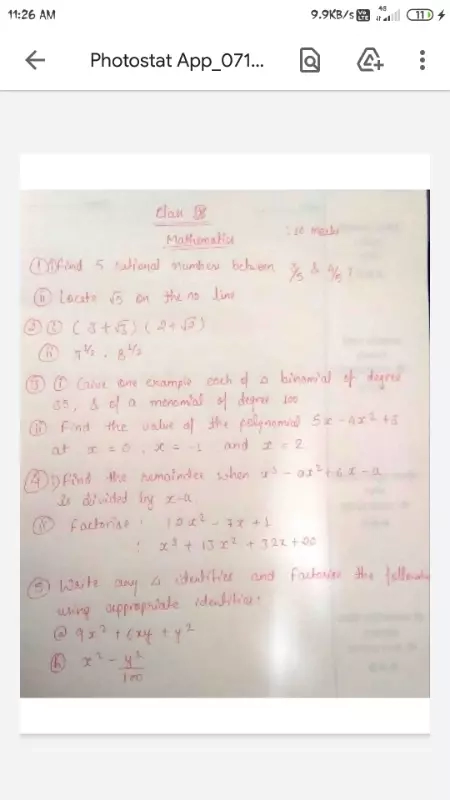 11:26 AM 9.9KB/s Vo LTE 4G 11
Photostat App_071...
Class IX
Mathematics
① i) Find 5 rational numbers between 3/5 & 4/5 ?
ii) Locate √5 on the no line
② i) (3+√3) (2+√2)
ii) 7^1/2 . 8^1/2
③ i) Give one example each of a binomial of degree
35, & of a monomial of degree 100
ii) Find the value of the polynomial 5x - 4x² + 3
at x = 0, x = -1 and x = 2
④ i) Find the remainder when x³ - ax² + 6x - a
is divided by x-a
ii) Factorise : 12x² - 7x + 1
: x³ + 13x² + 32x + 20
⑤ Write any identities and factorise the following
using appropriate identities.
ⓐ 9x² + 6xy + y²
ⓑ x² - y²/100